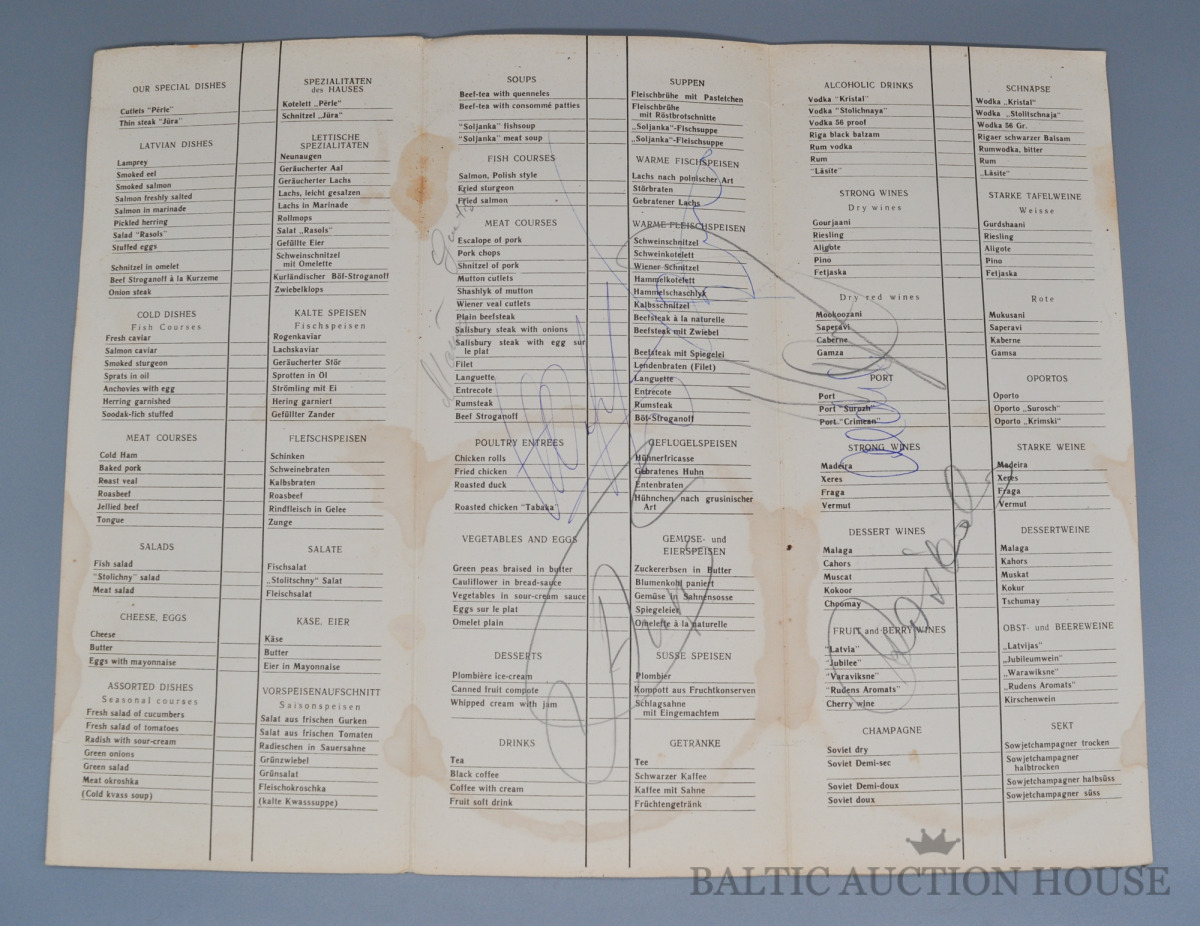 OUR SPECIAL DISHES
Cutlets "Pērle"
Thin steak "Jūra"
LATVIAN DISHES
Lamprey
Smoked eel
Smoked salmon
Salmon freshly salted
Salmon in marinade
Pickled herring
Salad "Rasols"
Stuffed eggs
Schnitzel in omelet
Beef Stroganoff à la Kurzeme
Onion steak
COLD DISHES
Fish Courses
Fresh caviar
Salmon caviar
Smoked sturgeon
Sprats in oil
Anchovies with egg
Herring garnished
Soodak-fich stuffed
MEAT COURSES
Cold Ham
Baked pork
Roast veal
Roasbeef
Jellied beef
Tongue
SALADS
Fish salad
"Stolichny" salad
Meat salad
CHEESE, EGGS
Cheese
Butter
Eggs with mayonnaise
ASSORTED DISHES
Seasonal courses
Fresh salad of cucumbers
Fresh salad of tomatoes
Radish with sour-cream
Green onions
Green salad
Meat okroshka
(Cold kvass soup)
SPEZIALITÄTEN
des HAUSES
Kotelett „Pērle"
Schnitzel „Jūra"
LETTISCHE
SPEZIALITÄTEN
Neunaugen
Geräucherter Aal
Geräucherter Lachs
Lachs, leicht gesalzen
Lachs in Marinade
Rollmops
Salat „Rasols"
Gefüllte Eier
Schweinschnitzel
mit Omelette
Kurländischer Böf-Stroganoff
Zwiebelklops
KALTE SPEISEN
Fischspeisen
Rogenkaviar
Lachskaviar
Geräucherter Stör
Sprotten in Öl
Strömling mit Ei
Hering garniert
Gefüllter Zander
FLEISCHSPEISEN
Schinken
Schweinebraten
Kalbsbraten
Roasbeef
Rindfleisch in Gelee
Zunge
SALATE
Fischsalat
„Stolitschny" Salat
Fleischsalat
KÄSE, EIER
Käse
Butter
Eier in Mayonnaise
VORSPEISENAUFSCHNITT
Saisonspeisen
Salat aus frischen Gurken
Salat aus frischen Tomaten
Radieschen in Sauersahne
Grünzwiebel
Grünsalat
Fleischokroschka
(kalte Kwasssuppe)
SOUPS
Beef-tea with quenneles
Beef-tea with consommé patties
"Soljanka" fishsoup
"Soljanka" meat soup
FISH COURSES
Salmon, Polish style
Fried sturgeon
Fried salmon
MEAT COURSES
Escalope of pork
Pork chops
Shnitzel of pork
Mutton cutlets
Shashlyk of mutton
Wiener veal cutlets
Plain beefsteak
Salisbury steak with onions
Salisbury steak with egg sur
le plat
Filet
Languette
Entrecote
Rumsteak
Beef Stroganoff
POULTRY ENTREES
Chicken rolls
Fried chicken
Roasted duck
Roasted chicken "Tabaka"
VEGETABLES AND EGGS
Green peas braised in butter
Cauliflower in bread-sauce
Vegetables in sour-cream sauce
Eggs sur le plat
Omelet plain
DESSERTS
Plombière ice-cream
Canned fruit compote
Whipped cream with jam
DRINKS
Tea
Black coffee
Coffee with cream
Fruit soft drink
SUPPEN
Fleischbrühe mit Pastetchen
Fleischbrühe
mit Röstbrotschnitte
„Soljanka"-Fischsuppe
„Soljanka"-Fleischsuppe
WARME FISCHSPEISEN
Lachs nach polnischer Art
Störbraten
Gebratener Lachs
WARME FLEISCHSPEISEN
Schweinschnitzel
Schweinkotelett
Wiener Schnitzel
Hammelkotelett
Hammelschaschlyk
Kalbsschnitzel
Beefsteak à la naturelle
Beefsteak mit Zwiebel
Beefsteak mit Spiegelei
Lendenbraten (Filet)
Languette
Entrecote
Rumsteak
Böf-Stroganoff
GEFLÜGELSPEISEN
Hühnerfricasse
Gebratenes Huhn
Entenbraten
Hühnchen nach grusinischer
Art
GEMÜSE- und
EIERSPEISEN
Zuckererbsen in Butter
Blumenkohl paniert
Gemüse in Sahnensosse
Spiegeleier
Omelette à la naturelle
SÜSSE SPEISEN
Plombier
Kompott aus Fruchtkonserven
Schlagsahne
mit Eingemachtem
GETRÄNKE
Tee
Schwarzer Kaffee
Kaffee mit Sahne
Früchtengetränk
ALCOHOLIC DRINKS
Vodka "Kristal"
Vodka "Stolichnaya"
Vodka 56 proof
Riga black balzam
Rum vodka
Rum
"Lāsite"
STRONG WINES
Dry wines
Gourjaani
Riesling
Aligote
Pino
Fetjaska
Dry red wines
Mookoozani
Saperavi
Caberne
Gamza
PORT
Port
Port "Surozh"
Port "Crimean"
STRONG WINES
Madeira
Xeres
Fraga
Vermut
DESSERT WINES
Malaga
Cahors
Muscat
Kokoor
Choomay
FRUIT and BERRY WINES
"Latvia"
"Jubilee"
"Varaviksne"
"Rudens Aromats"
Cherry wine
CHAMPAGNE
Soviet dry
Soviet Demi-sec
Soviet Demi-doux
Soviet doux
SCHNAPSE
Wodka „Kristal"
Wodka „Stolitschnaja"
Wodka 56 Gr.
Rigaer schwarzer Balsam
Rumwodka, bitter
Rum
„Lāsite"
STARKE TAFELWEINE
Weisse
Gurdshaani
Riesling
Aligote
Pino
Fetjaska
Rote
Mukusani
Saperavi
Kaberne
Gamsa
OPORTOS
Oporto
Oporto „Surosch"
Oporto „Krimski"
STARKE WEINE
Madeira
Xeres
Fraga
Vermut
DESSERTWEINE
Malaga
Kahors
Muskat
Kokur
Tschumay
OBST- und BEEREWEINE
„Latvijas"
„Jubileumwein"
„Warawiksne"
„Rudens Aromats"
Kirschenwein
SEKT
Sowjetchampagner trocken
Sowjetchampagner
halbtrocken
Sowjetchampagner halbsüss
Sowjetchampagner süss
BALTIC AUCTION HOUSE